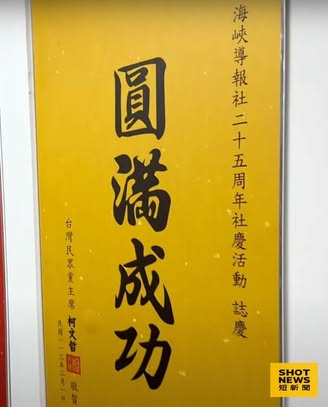 海峽導報社二十五周年社慶活動 誌慶
圓滿成功
台灣民眾黨主席 柯文哲 敬賀
民國一一三年二月一日
SHOT
NEWS
短新聞